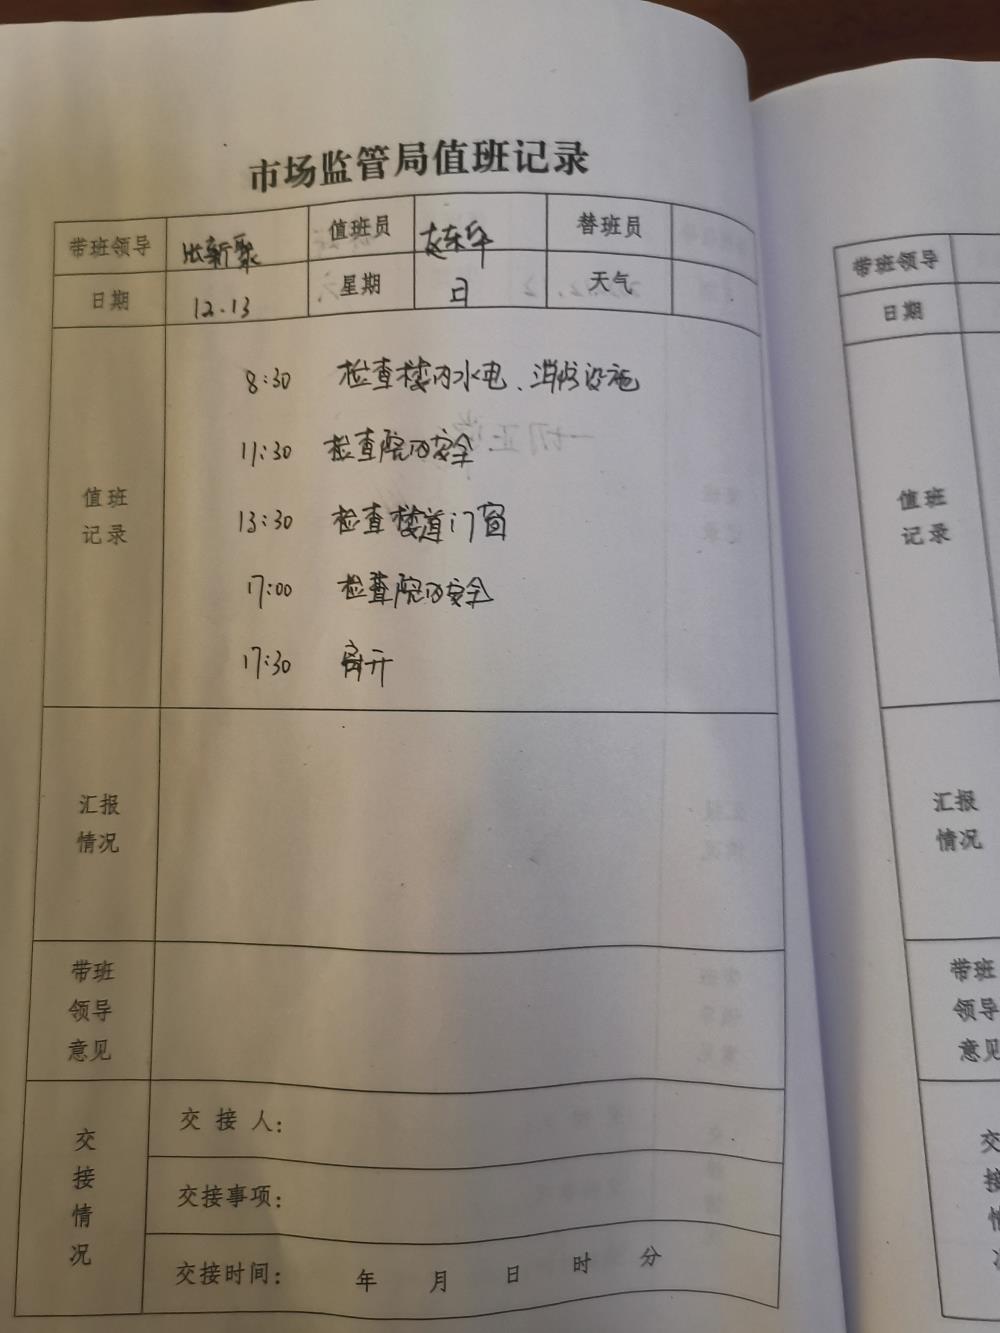 市场监管局值班记录
带班领导 张新聚 值班员 赵东华 替班员
日期 12.13 星期 日 天气
值班
记录
8:30 检查楼内水电、消防设施
11:30 检查院内安全
13:30 检查楼道门窗
17:00 检查院内安全
17:30 离开
汇报
情况
带班
领导
意见
交
接
情
况
交接人:
交接事项:
交接时间: 年 月 日 时 分
带班领导
日期
值班
记录
汇报
情况
带班
领导
意见
交
接